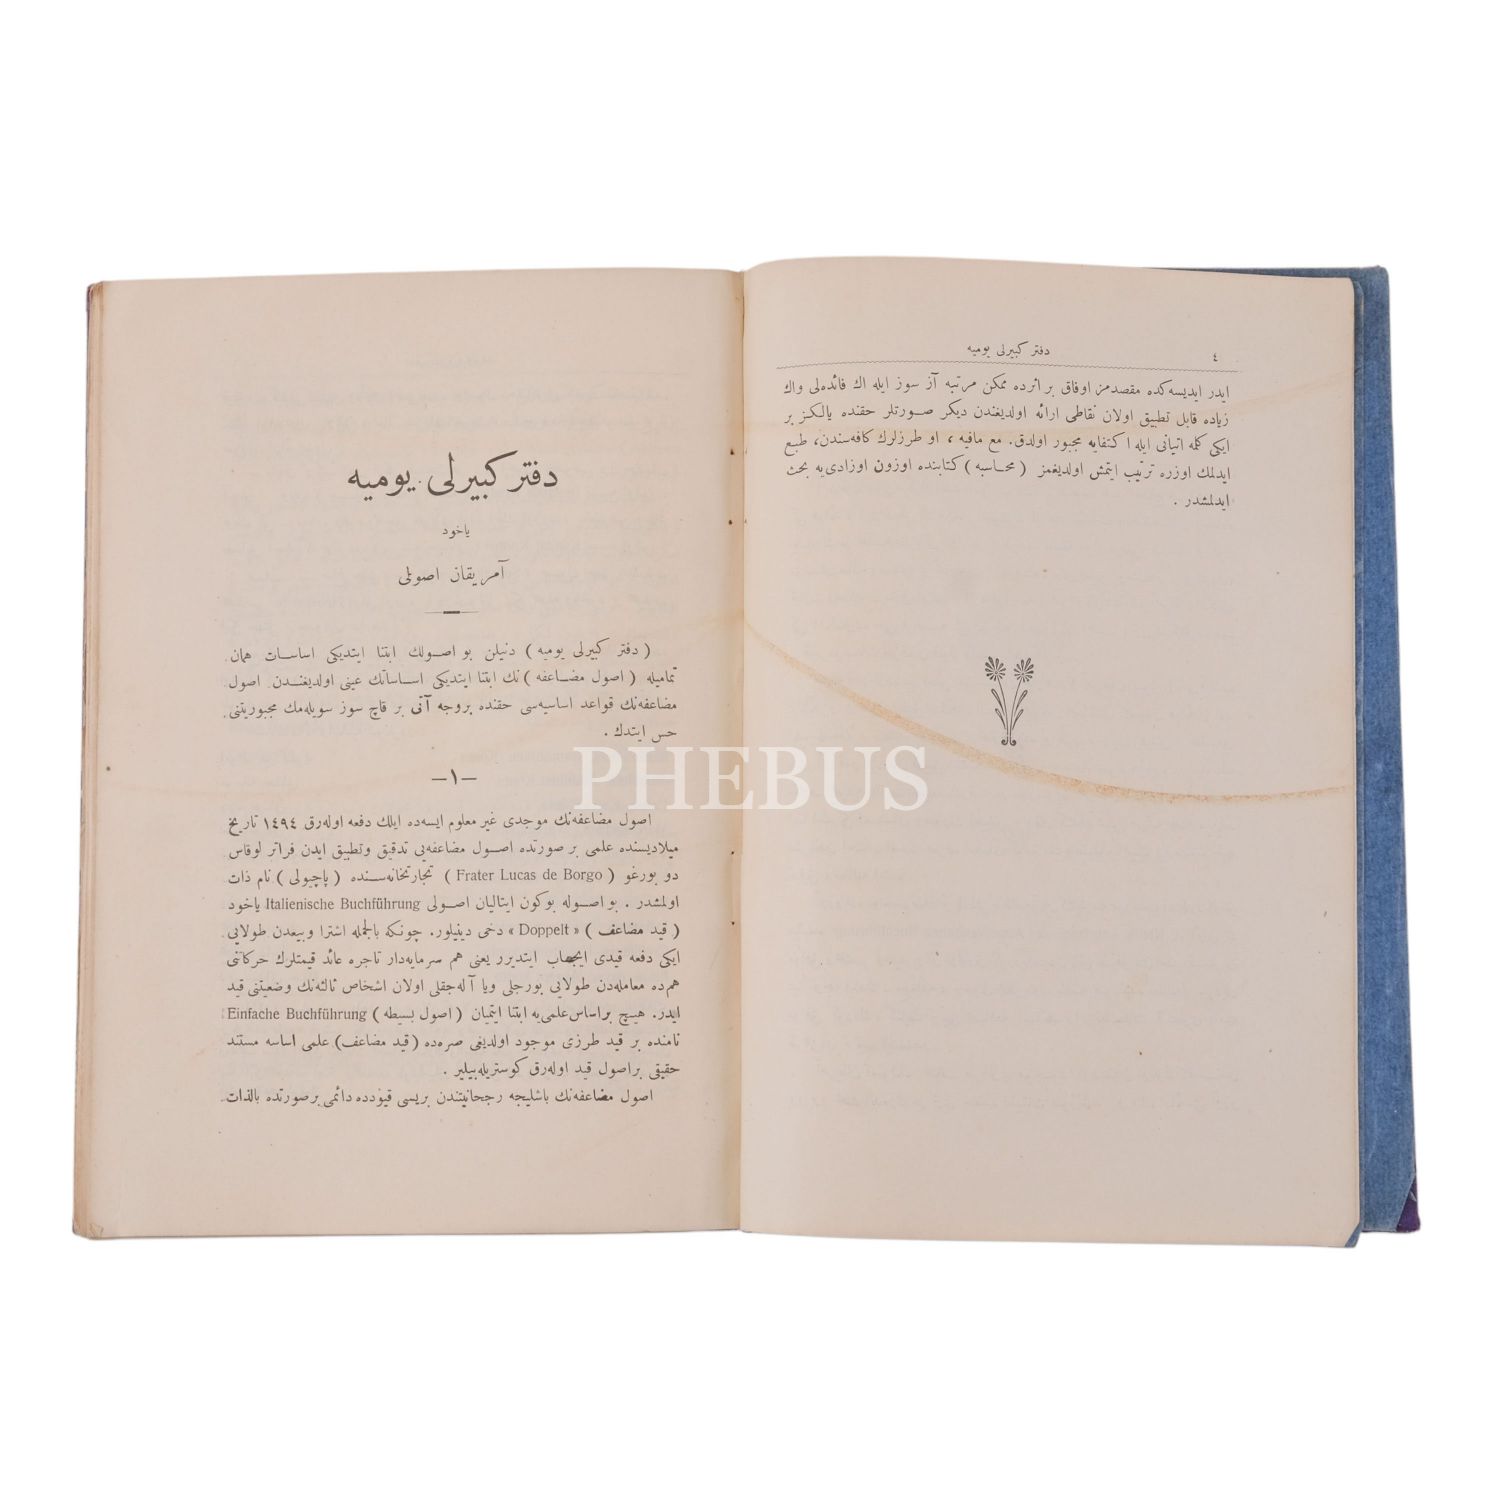 ٤
دفتر كبيرلى يوميه
ايدر ايديسه‌كده مقصدمز اوفاق بر اثرده ممكن مرتبه آز سوز ايله اك فائده‌لى واك
زياده قابل تطبيق اولان نقاطى ارائه اولديغندن ديكر صورتلر حقنده يالكز بر
ايكى كلمه اتيانى ايله اكتفايه مجبور اولدق. مع مافيه ، او طرزلرك كافه‌سندن، طبع
ايدلمك اوزره ترتيب ايتمش اولديغمز ( محاسبه ) كتابنده اوزون اوزادى‌يه بحث
ايدلمشدر .
دفتر كبيرلى يوميه
ياخود
آمريقان اصولى
( دفتر كبيرلى يوميه ) دنيلن بو اصولك ابتنا ايتديكى اساسات همان
تماميله ( اصول مضاعفه ) نك ابتنا ايتديكى اساساتك عينى اولديغندن اصول
مضاعفه‌نك قواعد اساسيه‌سى حقنده بروجه آتى بر قاچ سوز سويله‌مك مجبوريتنى
حس ايتدك .
—١—
اصول مضاعفه‌نك موجدى غير معلوم ايسه‌ده ايلك دفعه اوله‌رق ١٤٩٤ تاريخ
ميلاديسنده علمى بر صورتده اصول مضاعفه‌يى تدقيق وتطبيق ايدن فراتر لوقاس
دو بورغو ( Frater Lucas de Borgo ) تجارتخانه‌سنده ( پاچيولى ) نام ذات
اولمشدر . بو اصوله بوكون ايتاليان اصولى Italienische Buchführung ياخود
( قيد مضاعف ) « Doppelt » دخى دينيلور. چونكه بالجمله اشترا وبيعدن طولايى
ايكى دفعه قيدى ايجاب ايتديرر يعنى هم سرمايه‌دار تاجره عائد قيمتلرك حركاتنى
هم‌ده معامله‌دن طولايى بورجلى ويا آله‌جقلى اولان اشخاص ثالثه‌نك وضعيتنى قيد
ايدر. هيچ بر اساس علمى‌يه ابتنا ايتميان ( اصول بسيطه ) Einfache Buchführung
نامنده بر قيد طرزى موجود اولديغى صره‌ده ( قيد مضاعف ) علمى اساسه مستند
حقيقى بر اصول قيد اوله‌رق كوستريله‌بيلير .
اصول مضاعفه‌نك باشليجه رجحانيتندن بريسى قيودده دائمى بر صورتده بالذات
PHEBUS